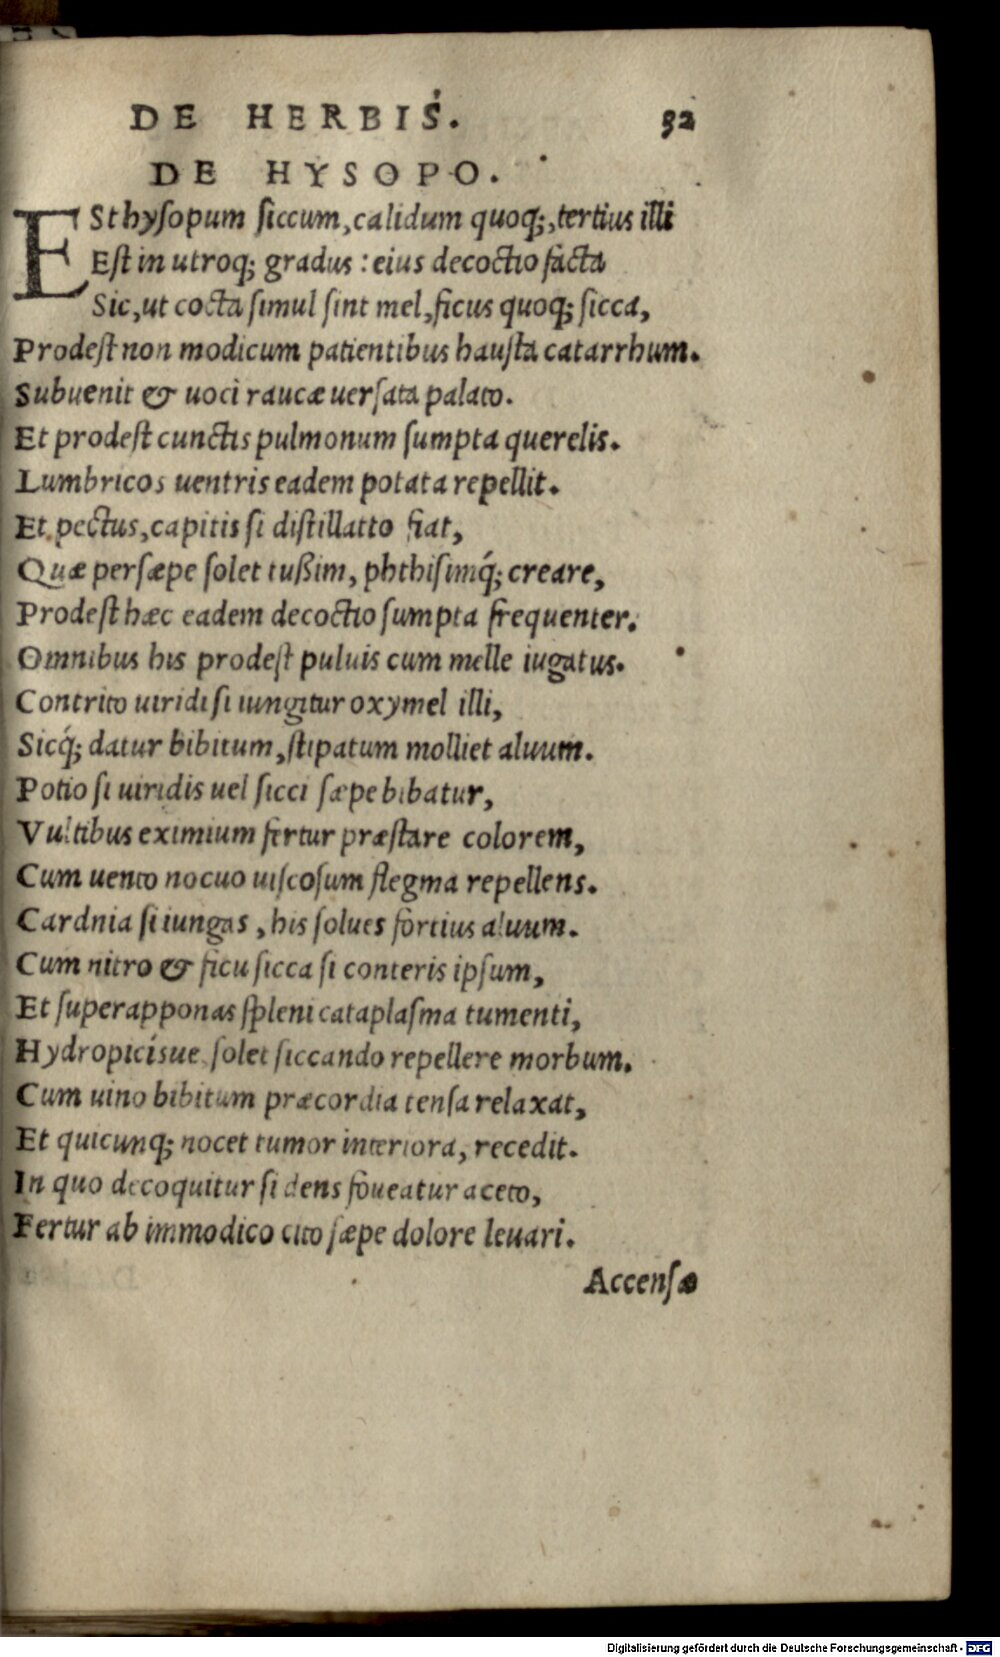 DE HERBIS. 32
DE HYSOPO.
ESt hysopum siccum, calidum quoq;, tertius illi
Est in utroq; gradus: eius decoctio facta
Sic, ut cocta simul sint mel, ficus quoq; sicca,
Prodest non modicum patientibus hausta catarrhum.
Subuenit & uoci raucæ uersata palato.
Et prodest cunctis pulmonum sumpta querelis.
Lumbricos uentris eadem potata repellit.
Et pectus, capitis si distillatto fiat,
Quæ persæpe solet tußim, phthisimq́; creare,
Prodest hæc eadem decoctio sumpta frequenter.
Omnibus his prodest puluis cum melle iugatus.
Contrito uiridi si iungitur oxymel illi,
Sicq́; datur bibitum, stipatum molliet aluum.
Potio si uiridis uel sicci sæpe bibatur,
Vultibus eximium fertur præstare colorem,
Cum uento nocuo uiscosum flegma repellens.
Cardnia si iungas, his solues fortius aluum.
Cum nitro & ficu sicca si conteris ipsum,
Et superapponas spleni cataplasma tumenti,
Hydropicísue solet siccando repellere morbum.
Cum uino bibitum præcordia tensa relaxat,
Et quicunq; nocet tumor interiora, recedit.
In quo decoquitur si dens foueatur aceto,
Fertur ab immodico cito sæpe dolore leuari.
Accensæ
Digitalisierung gefördert durch die Deutsche Forschungsgemeinschaft - DFG